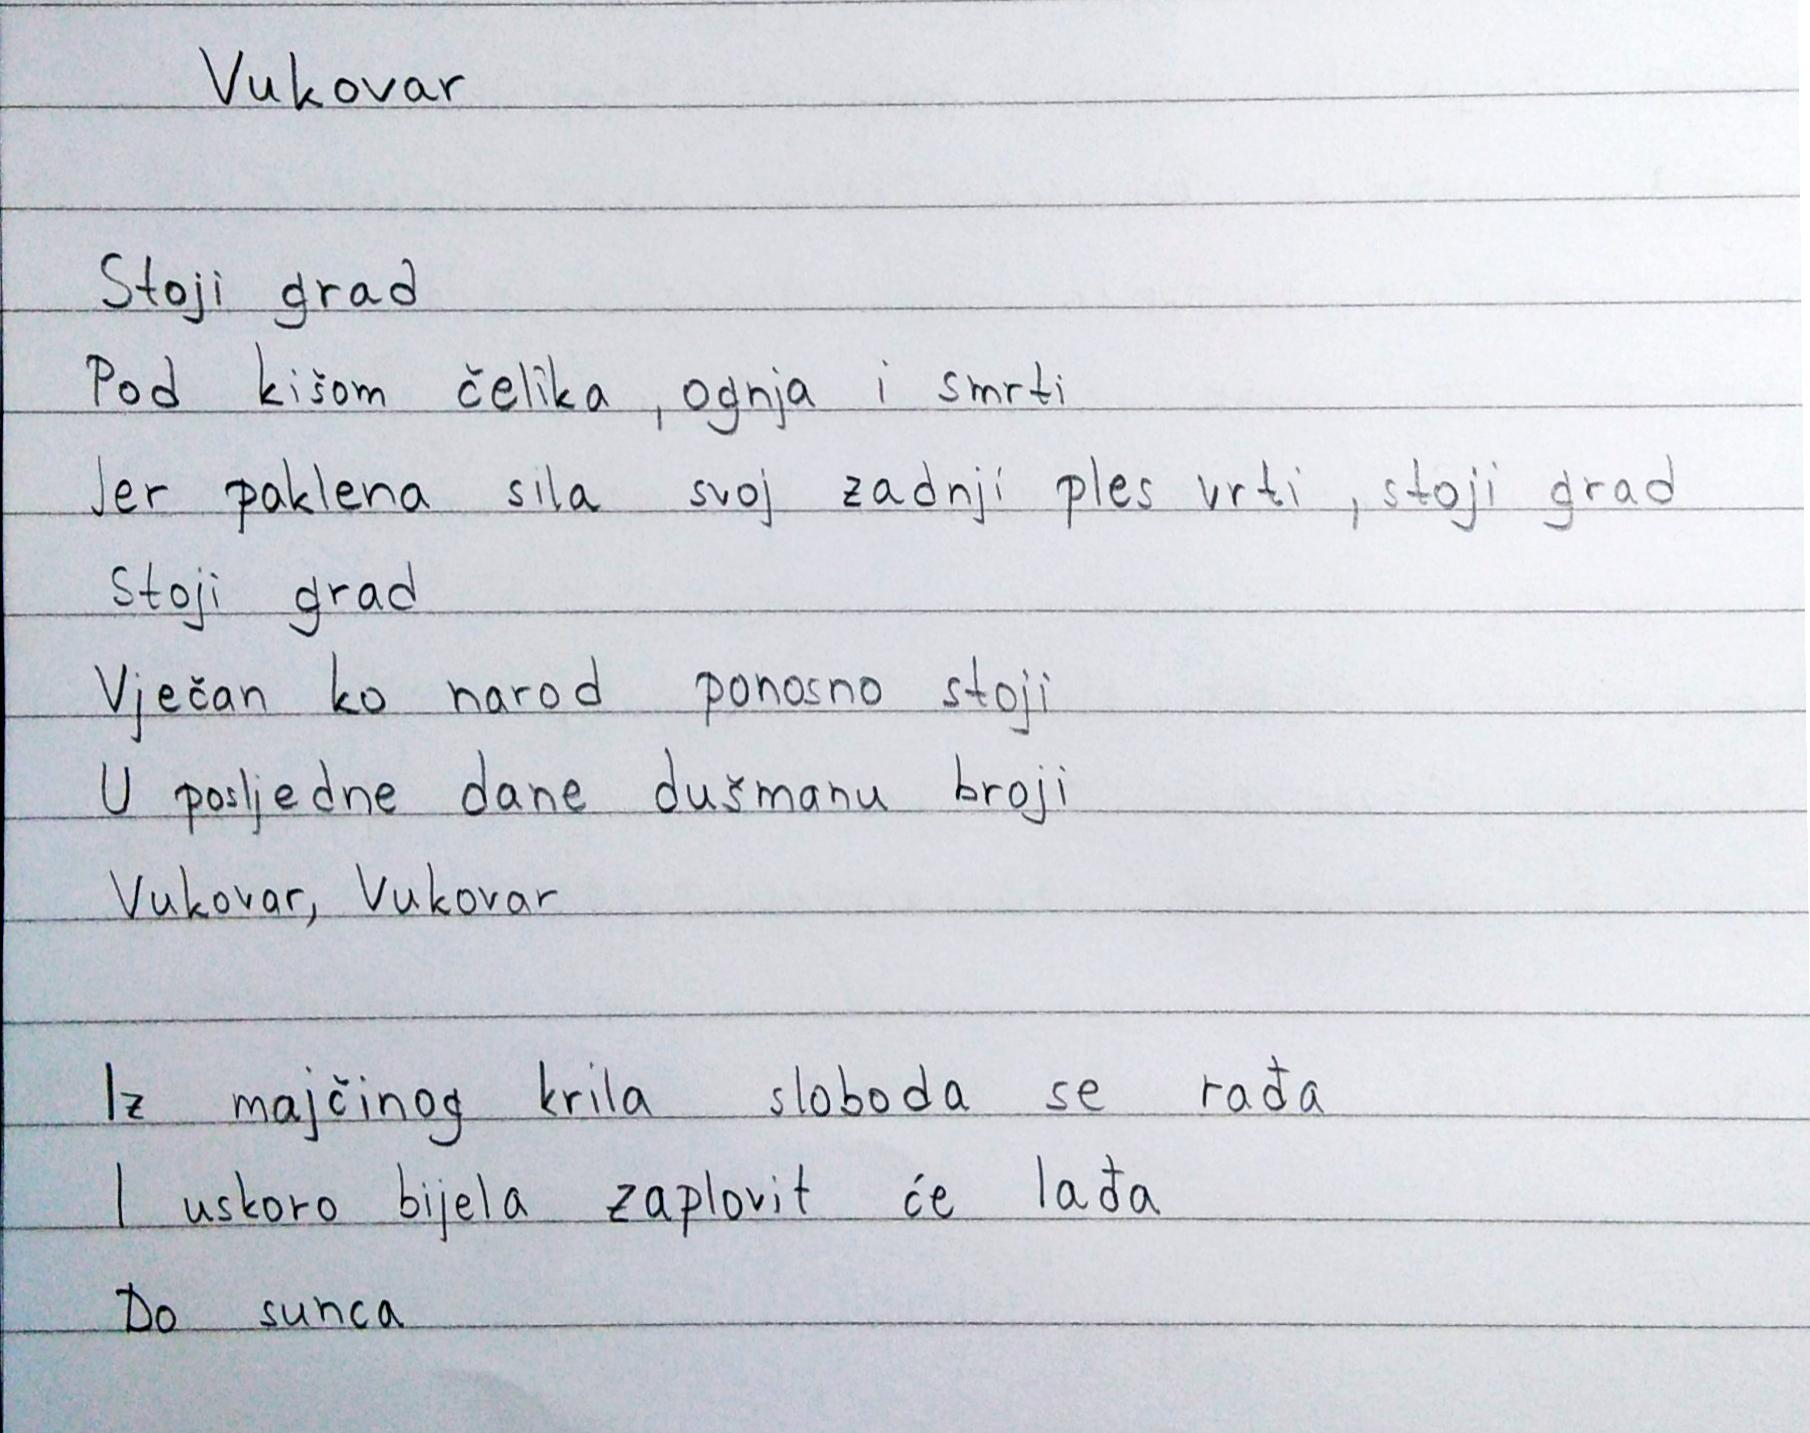 Vukovar
Stoji grad
Pod kišom čelika, ognja i smrti
Jer paklena sila svoj zadnji ples vrti, stoji grad
Stoji grad
Vječan ko narod ponosno stoji
U posljedne dane dušmanu broji
Vukovar, Vukovar
Iz majčinog krila sloboda se rađa
I uskoro bijela zaplovit će lađa
Do sunca